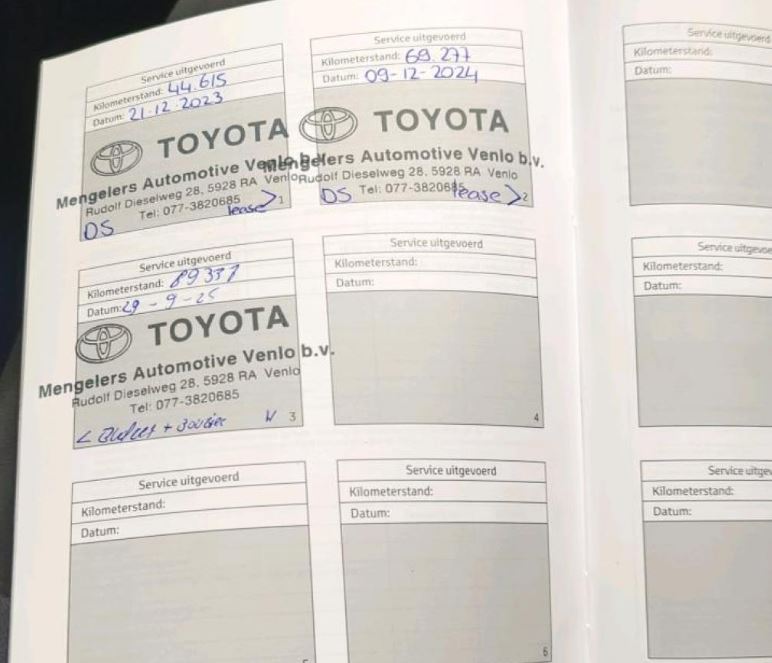 Service uitgevoerd
Kilometerstand: 44.615
Datum: 21-12-2023
TOYOTA
Mengelers Automotive Venlo b.v.
Rudolf Dieselweg 28, 5928 RA Venlo
Tel: 077-3820685
DS lease > 1
Service uitgevoerd
Kilometerstand: 69.277
Datum: 09-12-2024
TOYOTA
Mengelers Automotive Venlo b.v.
Rudolf Dieselweg 28, 5928 RA Venlo
Tel: 077-3820685
DS lease > 2
Service uitgevoerd
Kilometerstand: 89337
Datum: 29-9-25
TOYOTA
Mengelers Automotive Venlo b.v.
Rudolf Dieselweg 28, 5928 RA Venlo
Tel: 077-3820685
3
Service uitgevoerd
Kilometerstand:
Datum:
4
Service uitgevoerd
Kilometerstand:
Datum:
Service uitgevoerd
Kilometerstand:
Datum:
6
Service uitgevoerd
Kilometerstand:
Datum:
Service uitgevoe
Kilometerstand:
Datum:
Service uitgev
Kilometerstand:
Datum: